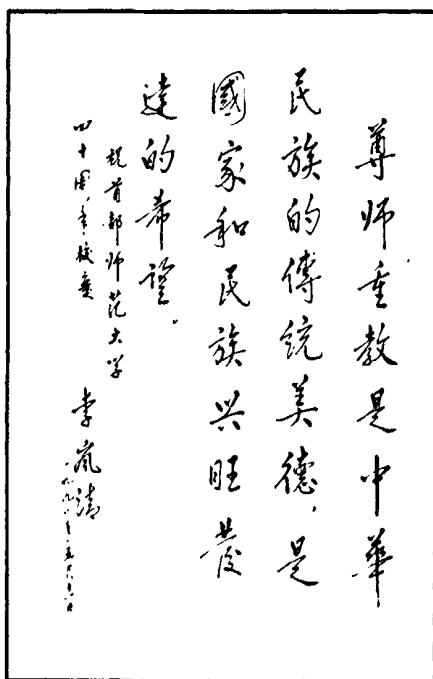 尊师重教是中華
民族的傳統美德，是
國家和民族兴旺發
達的希望。
祝首都师范大学
四十周年校慶
李岚清